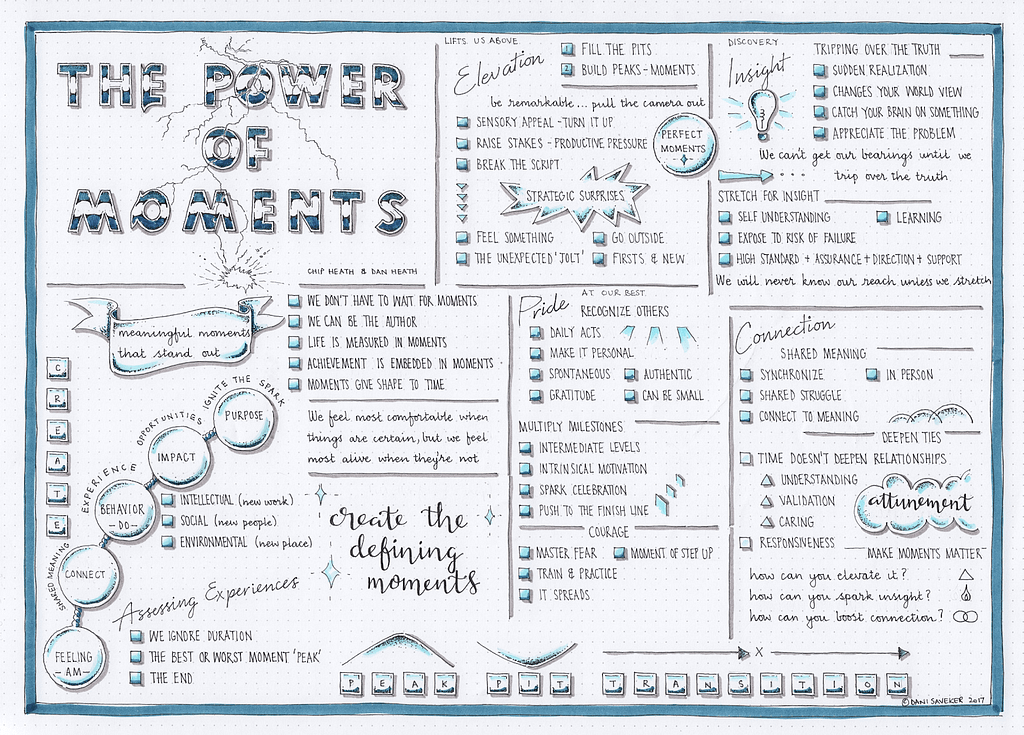 THE POWER
OF
MOMENTS
CHIP HEATH & DAN HEATH
meaningful moments
that stand out
WE DON'T HAVE TO WAIT FOR MOMENTS
WE CAN BE THE AUTHOR
LIFE IS MEASURED IN MOMENTS
ACHIEVEMENT IS EMBEDED IN MOMENTS
MOMENTS GIVE SHAPE TO TIME
We feel most comfortable when
things are certain, but we feel
most alive when they're not
CREATE
IGNITE THE SPARK
PURPOSE
OPPORTUNITIES
IMPACT
EXPERIENCE
BEHAVIOR
-DO-
SHARED MEANING
CONNECT
FEELING
-AM-
INTELLECTUAL (new work)
SOCIAL (new people)
ENVIRONMENTAL (new place)
create the
defining
moments
Assessing Experiences
WE IGNORE DURATION
THE BEST OR WORST MOMENT 'PEAK'
THE END
LIFTS US ABOVE
Elevation
FILL THE PITS
2 BUILD PEAKS - MOMENTS
be remarkable... pull the camera out
SENSORY APPEAL - TURN IT UP
RAISE STAKES - PRODUCTIVE PRESSURE
BREAK THE SCRIPT
PERFECT
MOMENTS
STRATEGIC SURPRISES
FEEL SOMETHING
GO OUTSIDE
THE UNEXPECTED 'JOLT'
FIRSTS & NEW
DISCOVERY
Insight
TRIPPING OVER THE TRUTH
SUDDEN REALIZATION
CHANGES YOUR WORLD VIEW
CATCH YOUR BRAIN ON SOMETHING
APPRECIATE THE PROBLEM
We can't get our bearings until we
trip over the truth
STRETCH FOR INSIGHT
SELF UNDERSTANDING
LEARNING
EXPOSE TO RISK OF FAILURE
HIGH STANDARD + ASSURANCE + DIRECTION + SUPPORT
We will never know our reach unless we stretch
AT OUR BEST
Pride
RECOGNIZE OTHERS
DAILY ACTS
MAKE IT PERSONAL
SPONTANEOUS
AUTHENTIC
GRATITUDE
CAN BE SMALL
MULTIPLY MILESTONES
INTERMEDIATE LEVELS
INTRINSICAL MOTIVATION
SPARK CELEBRATION
PUSH TO THE FINISH LINE
COURAGE
MASTER FEAR
MOMENT OF STEP UP
TRAIN & PRACTICE
IT SPREADS
Connection
SHARED MEANING
SYNCHRONIZE
IN PERSON
SHARED STRUGGLE
CONNECT TO MEANING
DEEPEN TIES
TIME DOESN'T DEEPEN RELATIONSHIPS
UNDERSTANDING
VALIDATION
CARING
attunement
RESPONSIVENESS
MAKE MOMENTS MATTER
how can you elevate it?
how can you spark insight?
how can you boost connection?
X
PEAK
PIT
TRANSITION
© DANI SAVEKER 2017